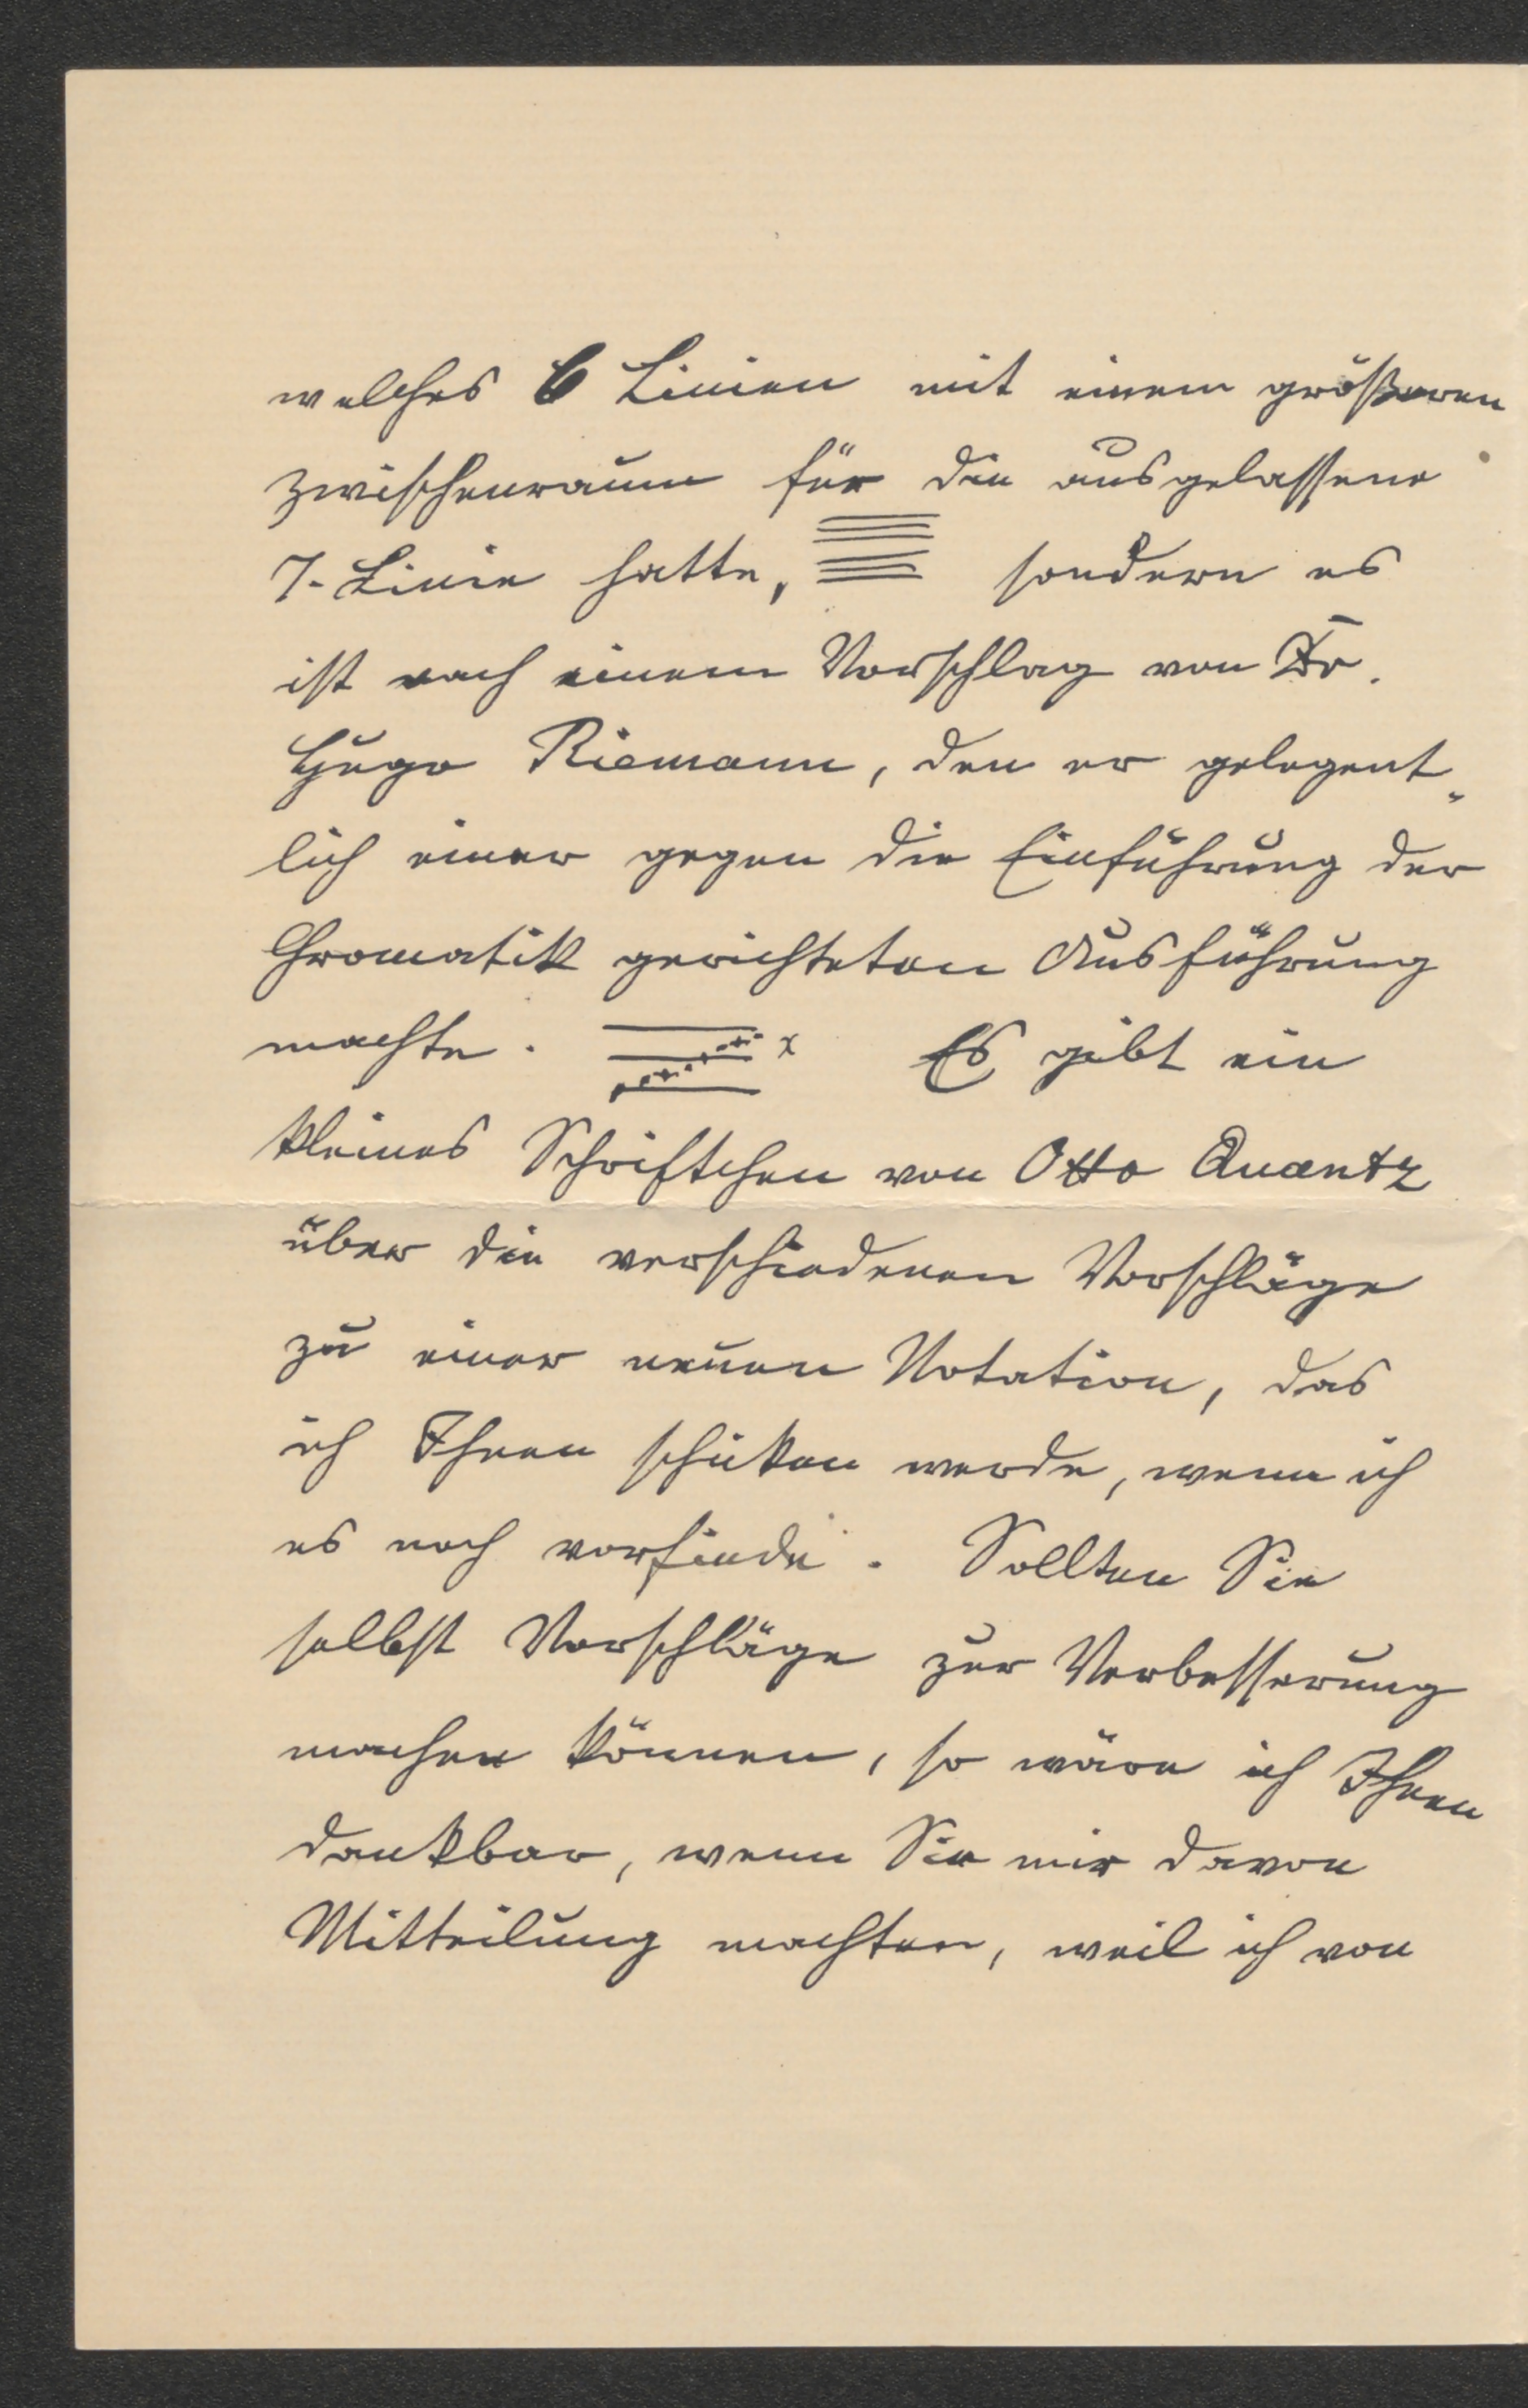 welches 6 Linien mit einem größeren
Zwischenraum für die ausgelassene
7. Linie hatte, sondern es
ist nach einem Vorschlag von Dr.
Hugo Riemann, den er gelegent„
lich einer gegen die Einführung der
Chromatik gerichteten Ausführung
machte. x Es gibt ein
kleines Schriftchen von Otto Quantz
über die verschiedenen Vorschläge
zu einer neuen Notation, das
ich Ihnen schicken werde, wenn ich
es noch vorfinde. Sollten Sie
selbst Vorschläge zur Verbesserung
machen können, so wäre ich Ihnen
dankbar, wenn Sie mir davon
Mitteilung machten, weil ich von